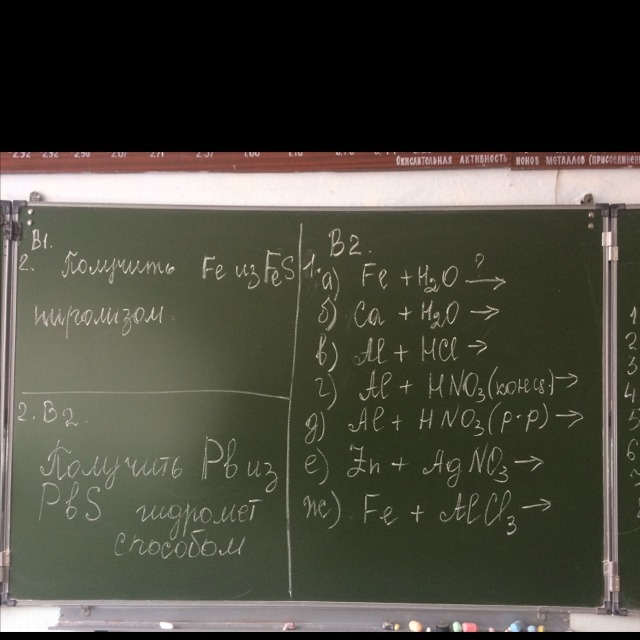 Окислительная активность ионов металлов (присоединен
В1.
2. Получить Fe из FeS
пиролизом
2. В2.
Получить Pb из
PbS гидромет
способом
В2.
1. а) Fe + H₂O →?
б) Ca + H₂O →
в) Al + HCl →
г) Al + HNO₃(конц.) →
д) Al + HNO₃(р-р) →
е) Zn + AgNO₃ →
ж) Fe + AlCl₃ →
1
2
3
4
5
6